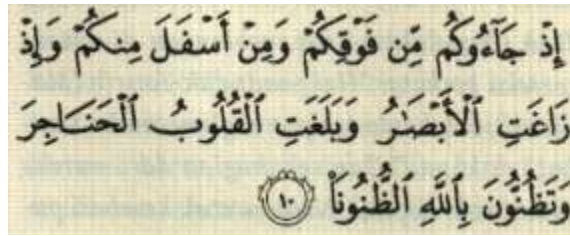 إِذْ جَآءُوكُم مِّن فَوْقِكُمْ وَمِنْ أَسْفَلَ مِنكُمْ وَإِذْ
زَاغَتِ ٱلْأَبْصَٰرُ وَبَلَغَتِ ٱلْقُلُوبُ ٱلْحَنَاجِرَ
وَتَظُنُّونَ بِٱللَّهِ ٱلظُّنُونَا۠ ١٠